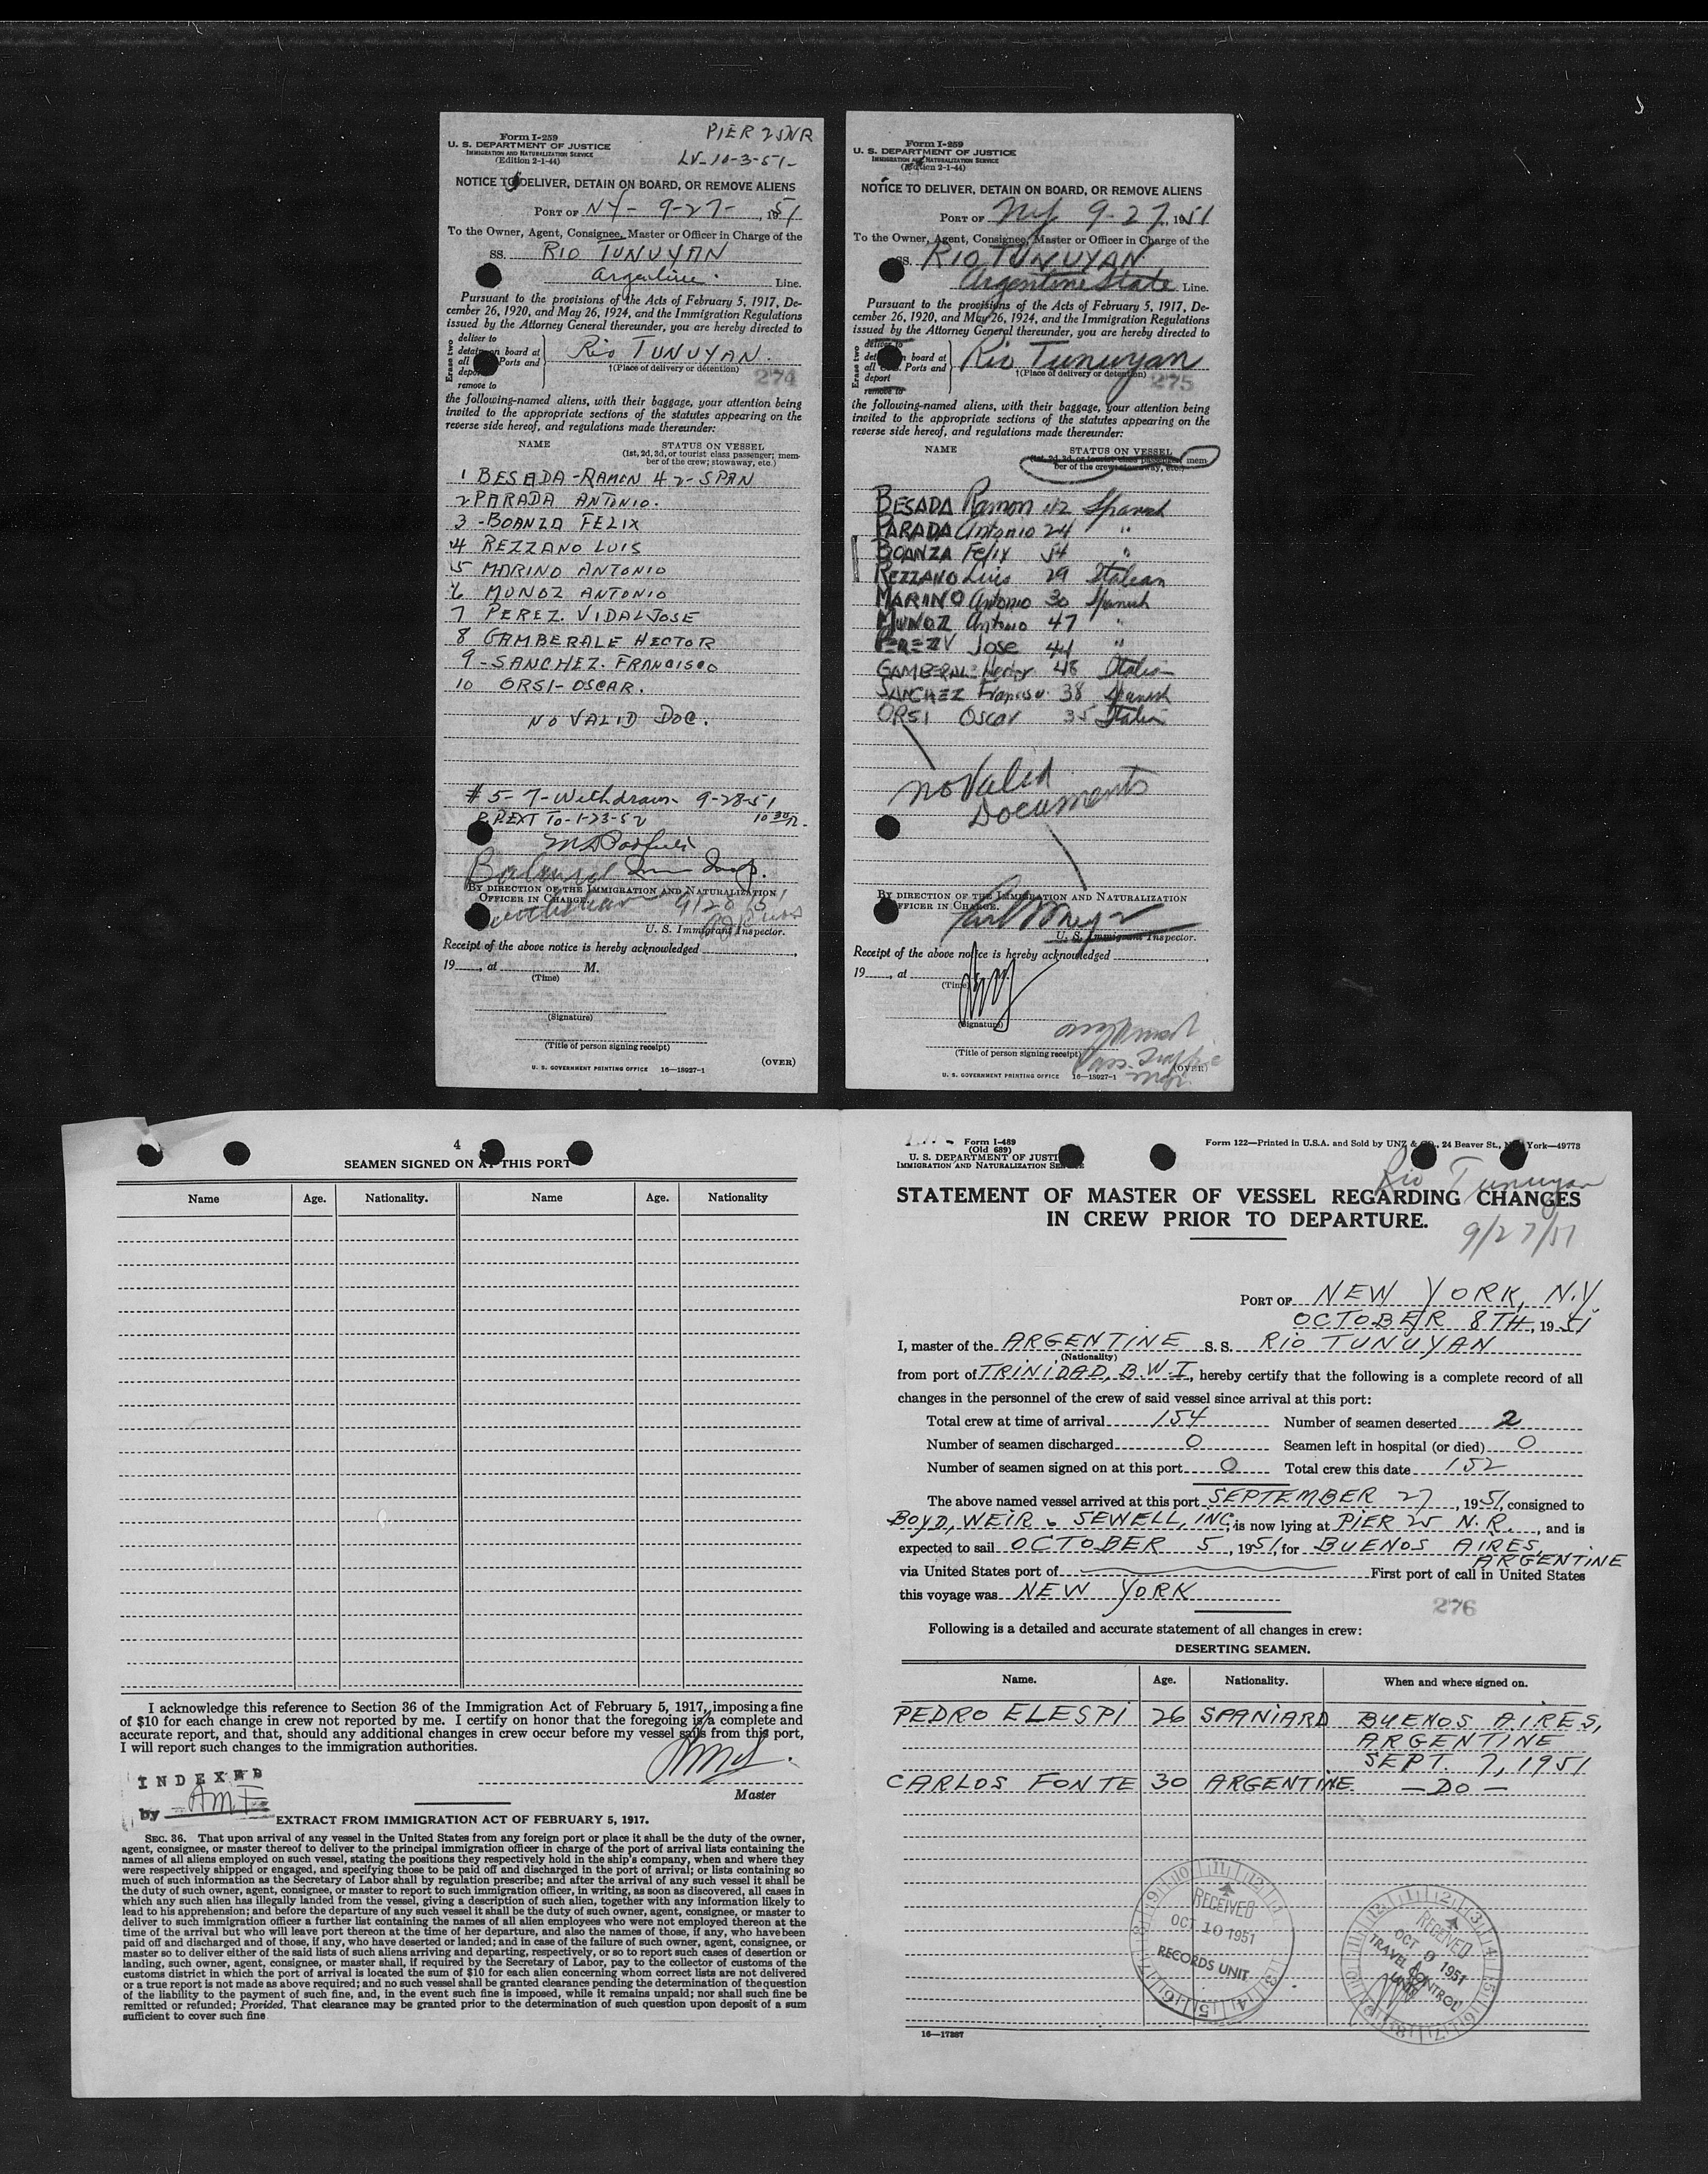 PIER 25NR
LV-10-3-51-
Form I-259
U. S. DEPARTMENT OF JUSTICE
IMMIGRATION AND NATURALIZATION SERVICE
(Edition 2-1-44)
NOTICE TO DELIVER, DETAIN ON BOARD, OR REMOVE ALIENS
PORT OF NY- 9-27-, 1951
To the Owner, Agent, Consignee, Master or Officer in Charge of the
SS. RIO TUNUYAN
Argentine Line.
Pursuant to the provisions of the Acts of February 5, 1917, De-
cember 26, 1920, and May 26, 1924, and the Immigration Regulations
issued by the Attorney General thereunder, you are hereby directed to
Erase two
deliver to
detain on board at
all Ports and
deport
remove to
RIO TUNUYAN.
†(Place of delivery or detention)
274
the following-named aliens, with their baggage, your attention being
invited to the appropriate sections of the statutes appearing on the
reverse side hereof, and regulations made thereunder:
NAME STATUS ON VESSEL
(1st, 2d, 3d, or tourist class passenger; mem-
ber of the crew; stowaway, etc.)
1 BESADA-RAMON 42-SPAN
2 PARADA ANTONIO.
3 -BOANZA FELIX
4 REZZANO LUIS
5 MARINO ANTONIO
6 MUNOZ ANTONIO
7 PEREZ. VIDAL JOSE
8 GAMBERALE HECTOR
9 -SANCHEZ. FRANCISCO
10 ORSI-OSCAR.
NO VALID DOC.
# 5-7-Withdrawn 9-28-51
P.P. EXT TO-1-23-52 10 30
BY DIRECTION OF THE IMMIGRATION AND NATURALIZATION
OFFICER IN CHARGE.
9/28/51
U. S. Immigrant Inspector.
Receipt of the above notice is hereby acknowledged
19 , at M.
(Time)
(Signature)
(Title of person signing receipt)
(OVER)
U. S. GOVERNMENT PRINTING OFFICE 16—18927-1
Form I-259
U. S. DEPARTMENT OF JUSTICE
IMMIGRATION AND NATURALIZATION SERVICE
(Edition 2-1-44)
NOTICE TO DELIVER, DETAIN ON BOARD, OR REMOVE ALIENS
PORT OF NY. 9-27, 1951
To the Owner, Agent, Consignee, Master or Officer in Charge of the
SS. RIO TUNUYAN
Argentine State Line.
Pursuant to the provisions of the Acts of February 5, 1917, De-
cember 26, 1920, and May 26, 1924, and the Immigration Regulations
issued by the Attorney General thereunder, you are hereby directed to
Erase two
deliver to
board at
all Ports and
deport
remove to
Rio Tunuyan
†(Place of delivery or detention)
275
the following-named aliens, with their baggage, your attention being
invited to the appropriate sections of the statutes appearing on the
reverse side hereof, and regulations made thereunder:
NAME STATUS ON VESSEL
(1st, 2d, 3d, or tourist class passenger; mem-
ber of the crew; stowaway, etc.)
BESADA Ramon 42 Spanish
PARADA Antonio 24 "
BOANZA Felix 54 "
REZZANO Luis 29 Italian
MARINO Antonio 30 Spanish
MUNOZ Antonio 47 "
PEREZ V Jose 44 "
GAMBERALE Hector 48 Italian
SANCHEZ Francisco 38 Spanish
ORSI Oscar 35 Italian
no Valid
Documents
BY DIRECTION OF THE IMMIGRATION AND NATURALIZATION
OFFICER IN CHARGE.
U. S. Immigrant Inspector.
Receipt of the above notice is hereby acknowledged
19 , at M.
(Time)
(Signature)
(Title of person signing receipt)
(OVER)
U. S. GOVERNMENT PRINTING OFFICE 16—18927-1
4
SEAMEN SIGNED ON AT THIS PORT
Name Age. Nationality. Name Age. Nationality
I acknowledge this reference to Section 36 of the Immigration Act of February 5, 1917, imposing a fine
of $10 for each change in crew not reported by me. I certify on honor that the foregoing is a complete and
accurate report, and that, should any additional changes in crew occur before my vessel sails from this port,
I will report such changes to the immigration authorities.
Master
INDEXED
by AMF
EXTRACT FROM IMMIGRATION ACT OF FEBRUARY 5, 1917.
SEC. 36. That upon arrival of any vessel in the United States from any foreign port or place it shall be the duty of the owner,
agent, consignee, or master thereof to deliver to the principal immigration officer in charge of the port of arrival lists containing the
names of all aliens employed on such vessel, stating the positions they respectively hold in the ship's company, when and where they
were respectively shipped or engaged, and specifying those to be paid off and discharged in the port of arrival; or lists containing so
much of such information as the Secretary of Labor shall by regulation prescribe; and after the arrival of any such vessel it shall be
the duty of such owner, agent, consignee, or master to report to such immigration officer, in writing, as soon as discovered, all cases in
which any such alien has illegally landed from the vessel, giving a description of such alien, together with any information likely to
lead to his apprehension; and before the departure of any such vessel it shall be the duty of such owner, agent, consignee, or master to
deliver to such immigration officer a further list containing the names of all alien employees who were not employed thereon at the
time of the arrival but who will leave port thereon at the time of her departure, and also the names of those, if any, who have been
paid off and discharged and of those, if any, who have deserted or landed; and in case of the failure of such owner, agent, consignee, or
master so to deliver either of the said lists of such aliens arriving and departing, respectively, or so to report such cases of desertion or
landing, such owner, agent, consignee, or master shall, if required by the Secretary of Labor, pay to the collector of customs of the
customs district in which the port of arrival is located the sum of $10 for each alien concerning whom correct lists are not delivered
or a true report is not made as above required; and no such vessel shall be granted clearance pending the determination of the question
of the liability to the payment of such fine, and, in the event such fine is imposed, while it remains unpaid; nor shall such fine be
remitted or refunded; Provided, That clearance may be granted prior to the determination of such question upon deposit of a sum
sufficient to cover such fine
Form I-489
(Old 689)
U. S. DEPARTMENT OF JUSTICE
IMMIGRATION AND NATURALIZATION SERVICE
Form 122—Printed in U.S.A. and Sold by UNZ & CO., 24 Beaver St., New York—49773
Rio Tunuyan
9/27/51
STATEMENT OF MASTER OF VESSEL REGARDING CHANGES
IN CREW PRIOR TO DEPARTURE.
PORT OF NEW YORK, N.Y.
OCTOBER 8TH, 1951
I, master of the ARGENTINE S. S. RIO TUNUYAN
(Nationality)
from port of TRINIDAD, B.W.I., hereby certify that the following is a complete record of all
changes in the personnel of the crew of said vessel since arrival at this port:
Total crew at time of arrival 154 Number of seamen deserted 2
Number of seamen discharged 0 Seamen left in hospital (or died) 0
Number of seamen signed on at this port 0 Total crew this date 152
The above named vessel arrived at this port SEPTEMBER 27, 1951, consigned to
BOYD, WEIR & SEWELL, INC, is now lying at PIER 25 N.R., and is
expected to sail OCTOBER 5, 1951, for BUENOS AIRES,
ARGENTINE
via United States port of First port of call in United States
this voyage was NEW YORK
276
Following is a detailed and accurate statement of all changes in crew:
DESERTING SEAMEN.
Name. Age. Nationality. When and where signed on.
PEDRO ELESPI 26 SPANIARD BUENOS AIRES,
ARGENTINE
SEPT. 7, 1951
CARLOS FONTE 30 ARGENTINE —DO—
RECEIVED
OCT 10 1951
RECORDS UNIT
RECEIVED
OCT 9 1951
TRAVEL CONTROL
UNIT
16—17287